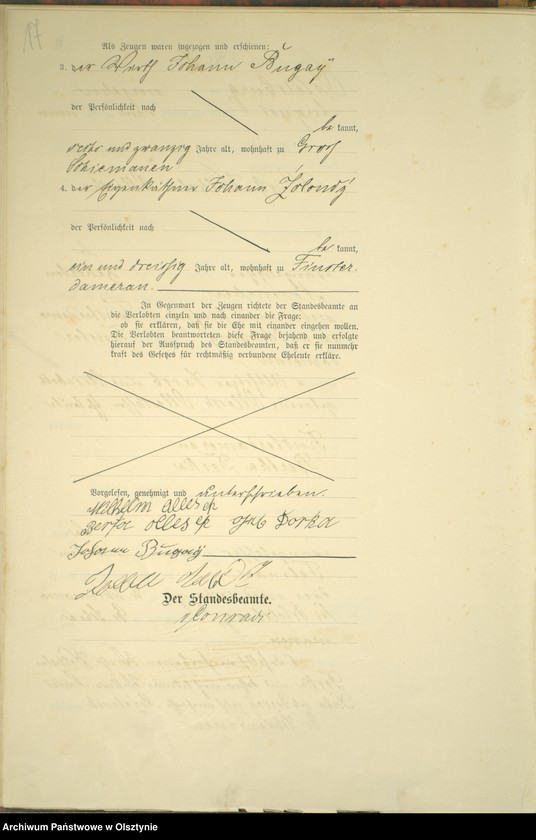 17
Als Zeugen waren zugezogen und erschienen:
3. der Wirth Johann Bugaÿ
der Persönlichkeit nach
be kannt,
sechs und zwanzig Jahre alt, wohnhaft zu Groß
Schiemanen
4. der Eigenkäthner Johann Zolondÿ
der Persönlichkeit nach
be kannt,
ein und dreißig Jahre alt, wohnhaft zu Finster-
dameran.
In Gegenwart der Zeugen richtete der Standesbeamte an
die Verlobten einzeln und nach einander die Frage:
ob sie erklären, daß sie die Ehe mit einander eingehen wollen.
Die Verlobten beantworteten diese Frage bejahend und erfolgte
hierauf der Ausspruch des Standesbeamten, daß er sie nunmehr
kraft des Gesetzes für rechtmäßig verbundene Eheleute erkläre.
Vorgelesen, genehmigt und unterschrieben.
Wilhelm Ollesch
Olles geb Dorka
Johann Bugaÿ
Der Standesbeamte.
Conradi
Archiwum Państwowe w Olsztynie